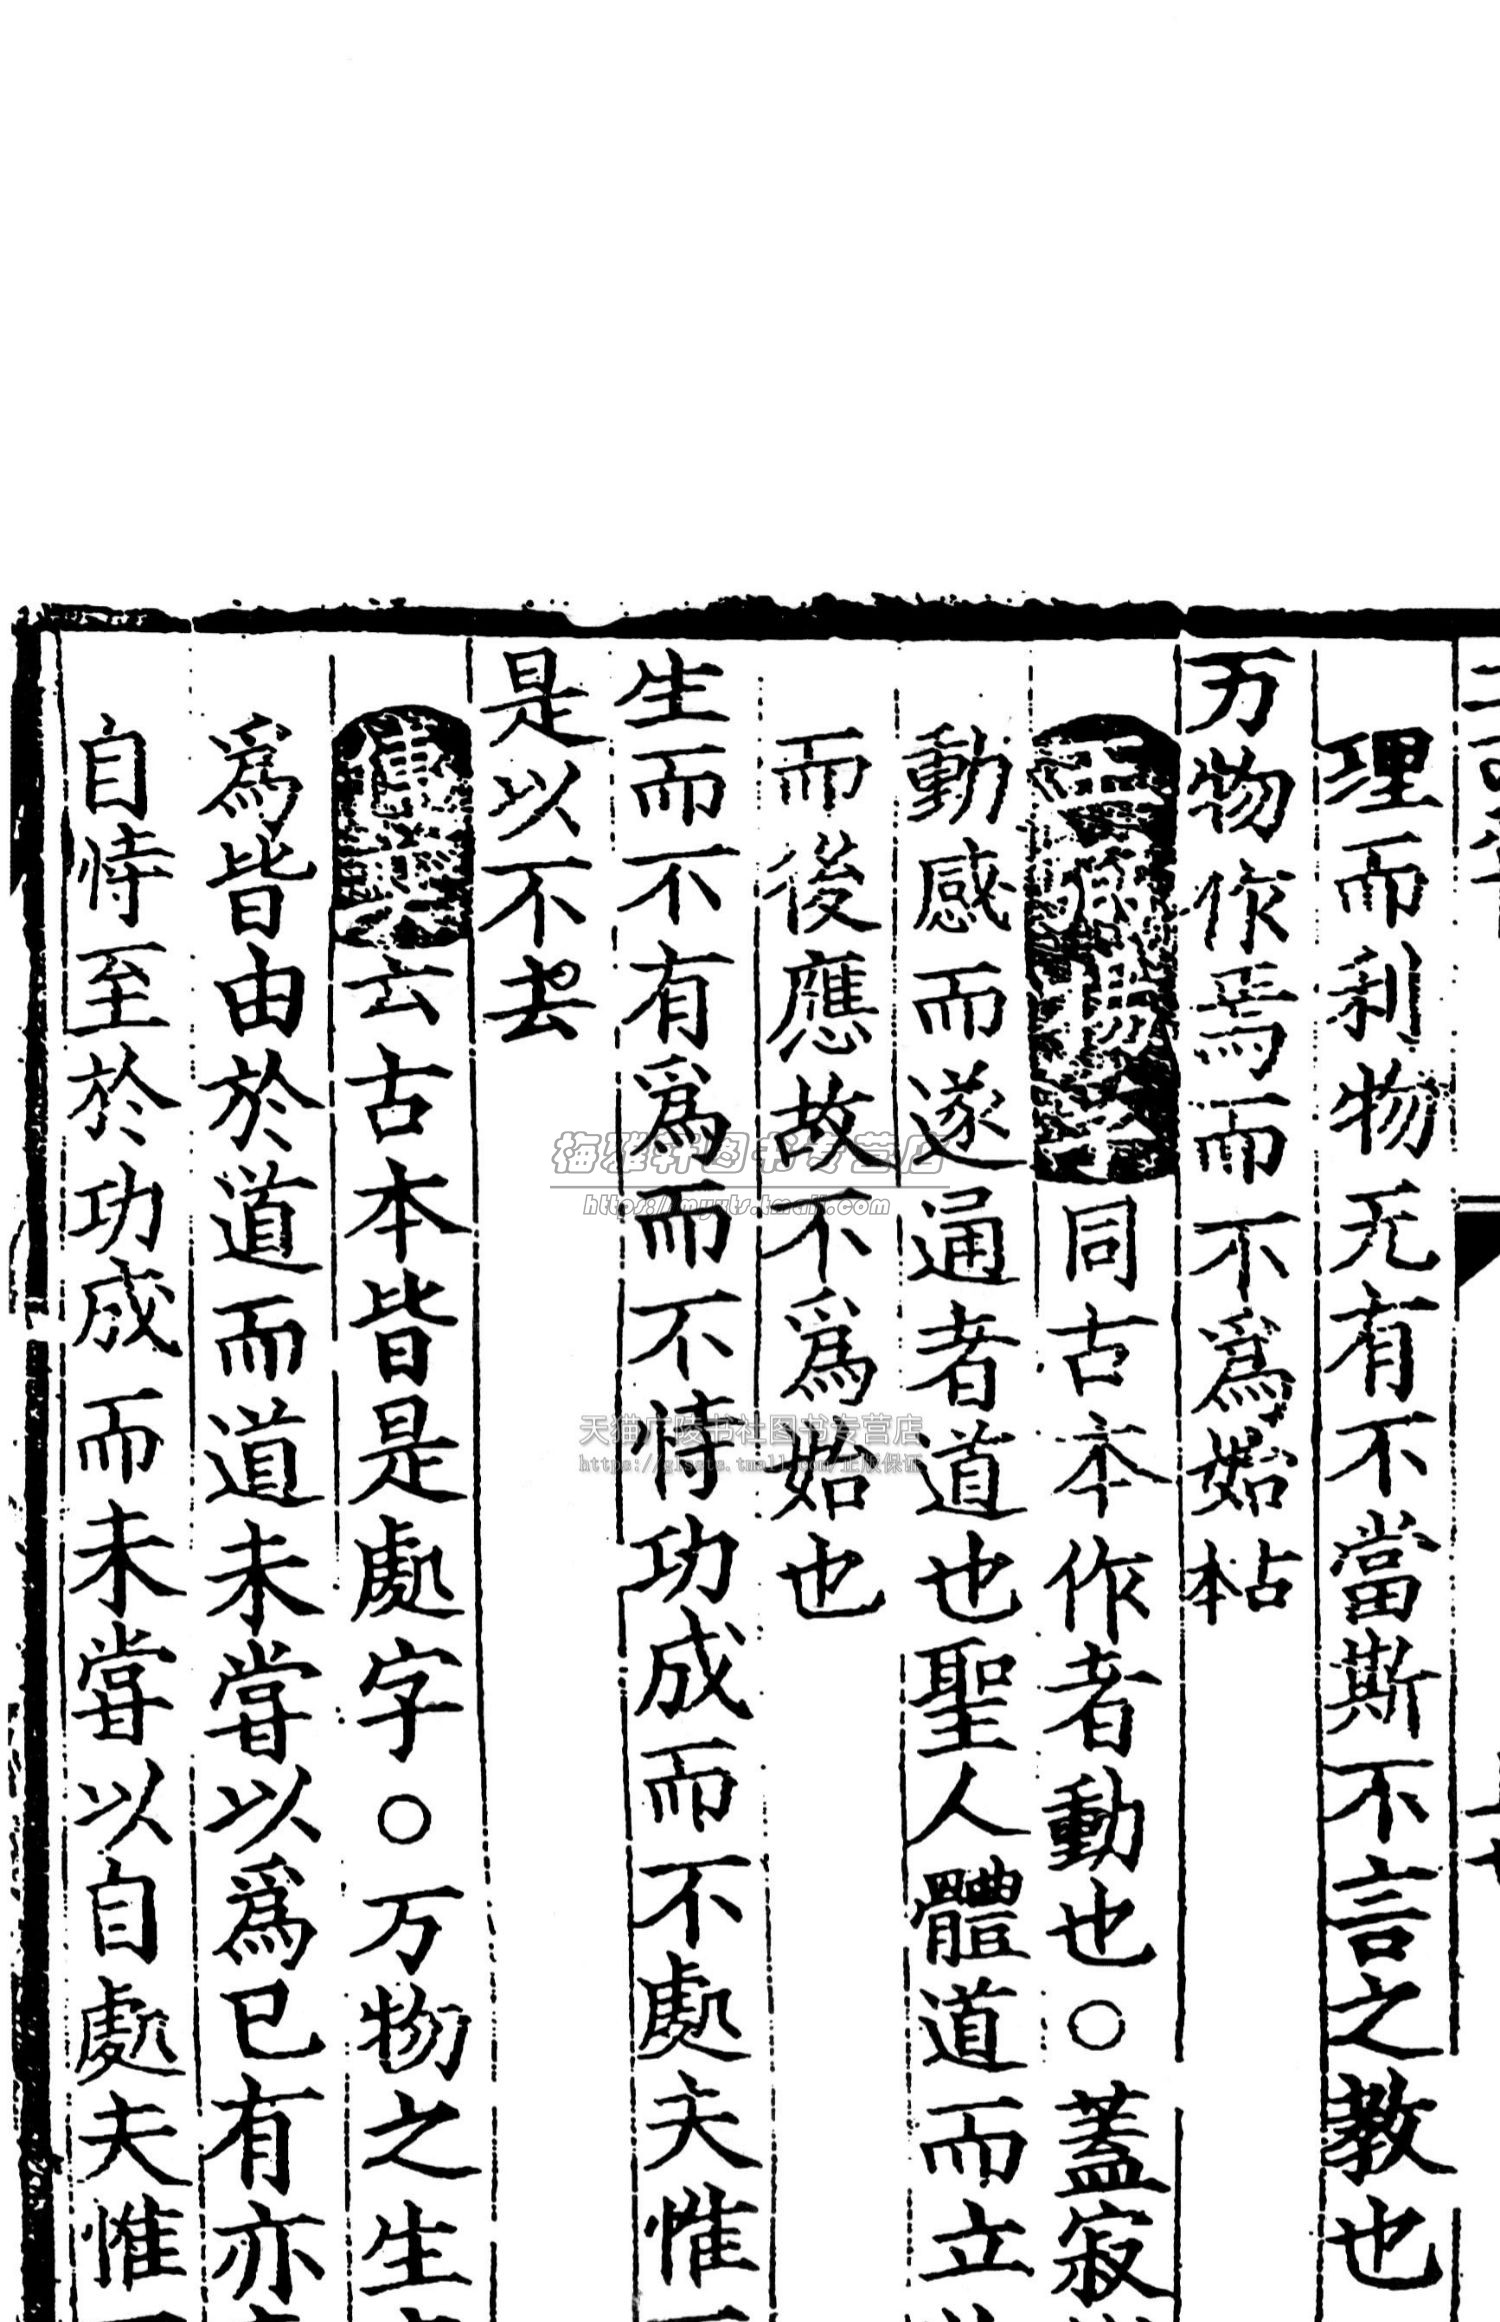 理而利物无有不當斯不言之教也
万物作焉而不爲始帖本
同古本作者動也○蓋寂
動感而遂通者道也聖人體道而立
而後應故不爲始也
生而不有爲而不恃功成而不處夫惟
是以不去
玄古本皆是處字○万物之生
爲皆由於道而道未嘗以爲已有亦
自恃至於功成而未嘗以自處夫惟
梅雅轩图书专营店
https://myxts.tmall.com
天猫广陵书社图书专营店